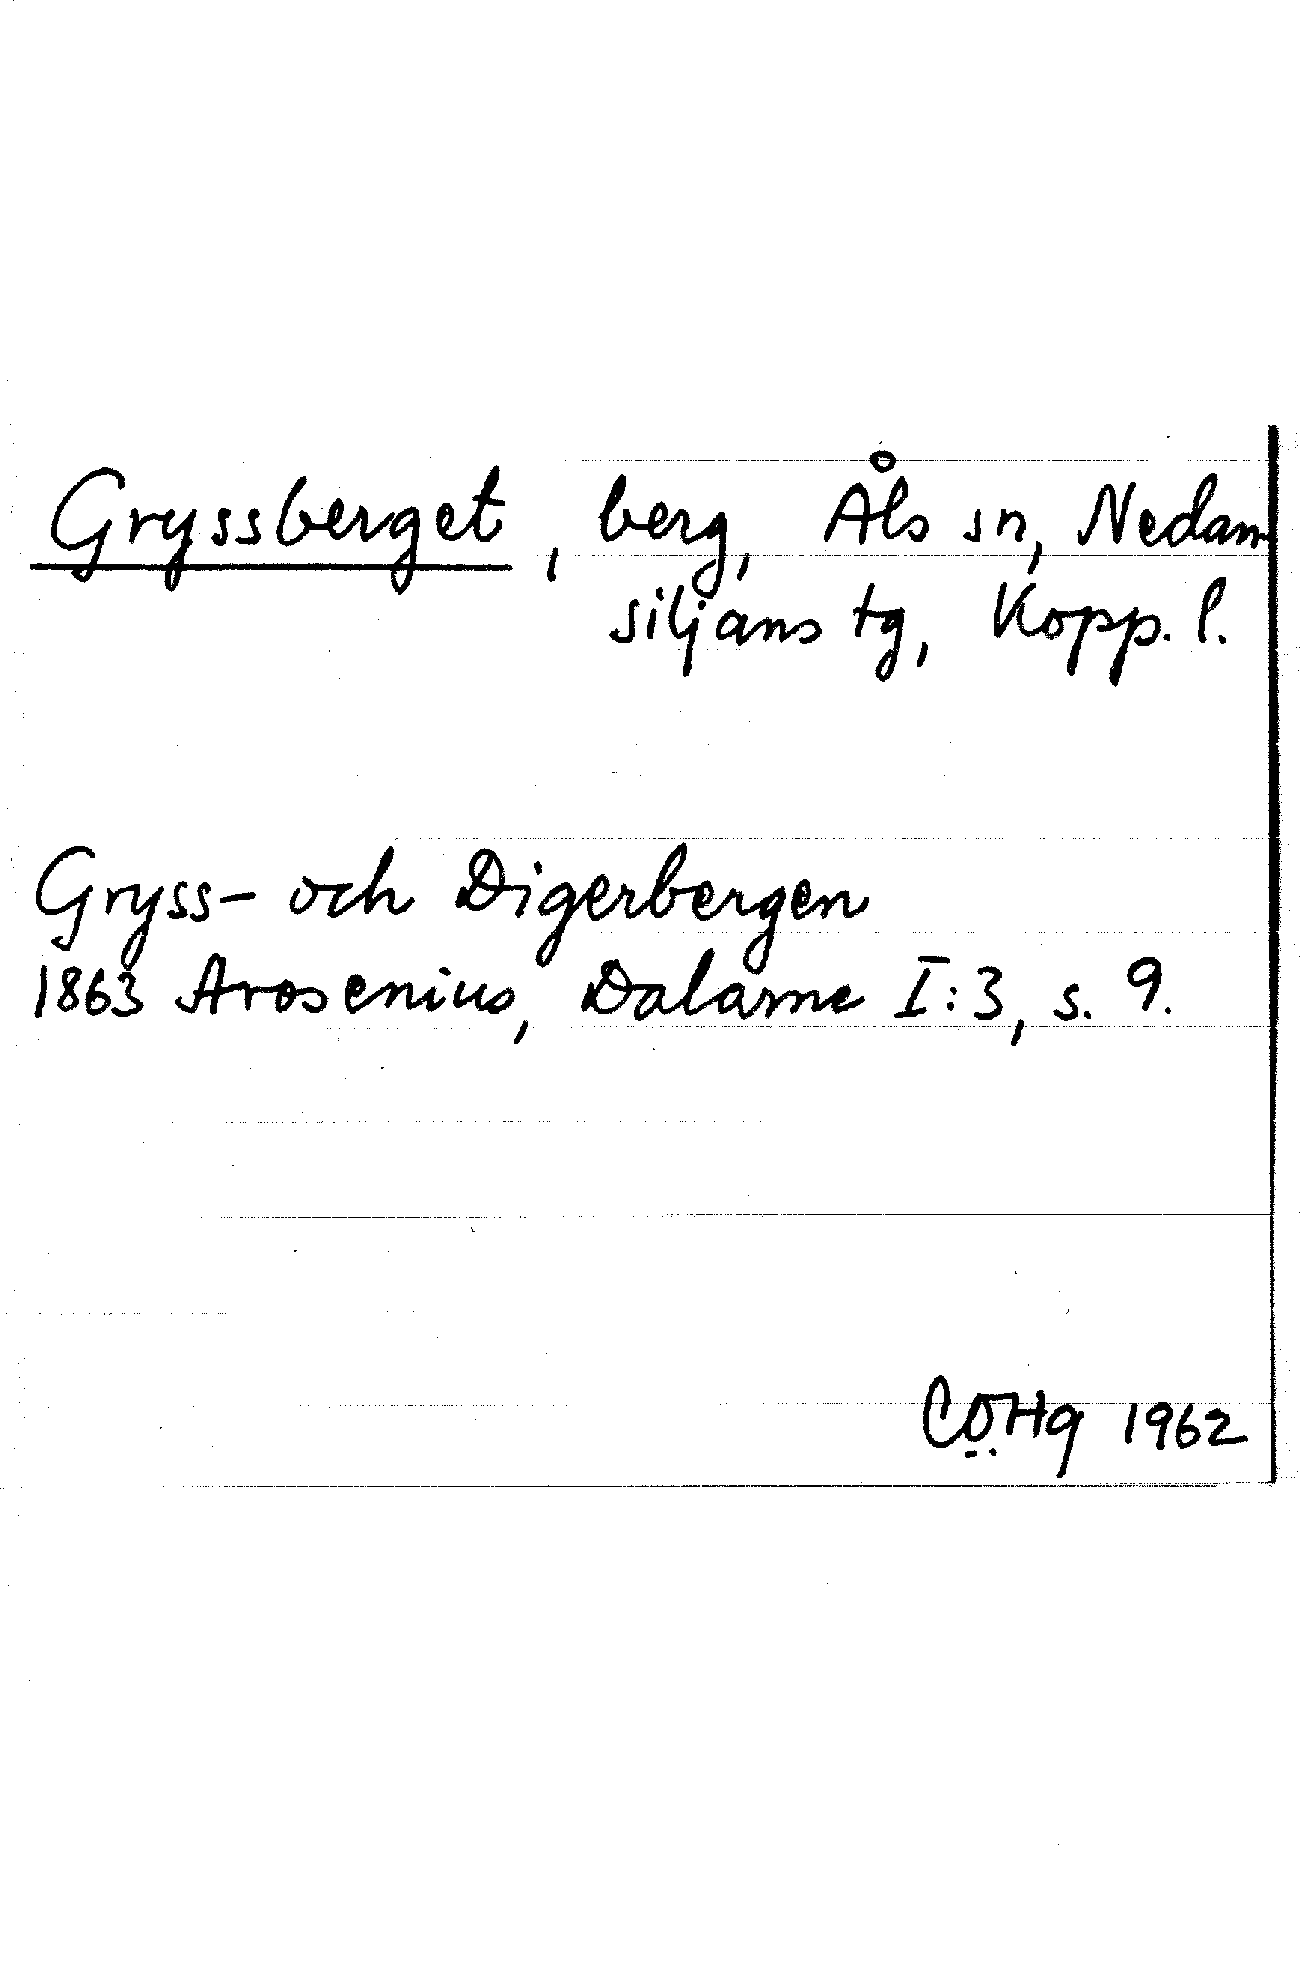 Gryssberget, berg, Åls sn, Nedan
siljans tg, Kopp. l.
Gryss- och Digerbergen
1863 Arosenius, Dalarne I:3, s. 9.
CÖHq 1962